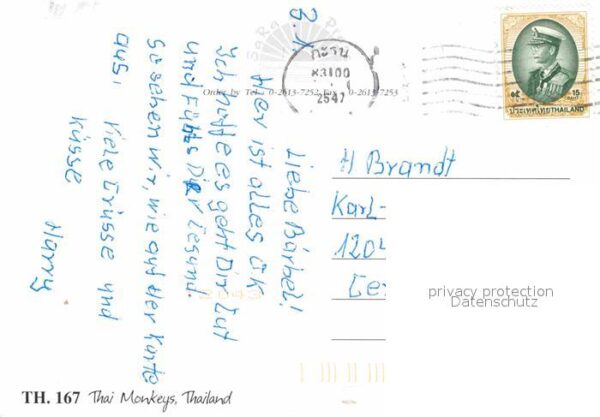 3.1.
Liebe Bärbel!
Hier ist alles OK
Ich hoffe es geht Dir Gut
und Fühls Dir Gesund.
Gesehen wir, wie auf der Karte
aus, Viele Grüsse und
Küsse
Harry
Order by Tel. 0-2613-7252 Fax. 0-2613-7253
กะรน
83100
2547
๑๕ 15
ประเทศไทย THAILAND
H Brandt
Karl-
120
privacy protection
Datenschutz
TH. 167 Thai Monkeys, Thailand